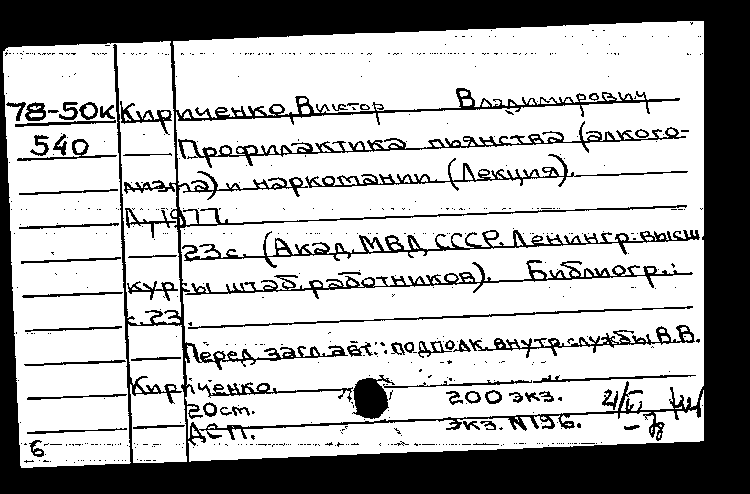 78-50к Кириченко, Виктор Владимирович
540 Профилактика пьянства (алкого-
лизма) и наркомании (Лекция).
Л., 1977.
23с. (Акад. МВД СССР. Ленингр. высш.
курсы штаб. работников). Библиогр.:
с. 23.
Перед загл. авт.: подполк. внутр. службы В.В.
Кириченко.
20 см. 200 экз.
ДСП. экз. N 196.
6